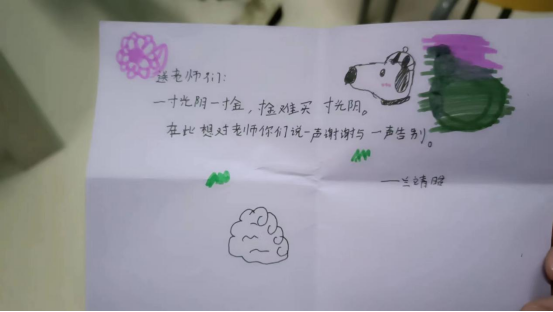 老师们：
一寸光阴一寸金，寸金难买 寸光阴。
在此想对老师你们说一声谢谢与一声告别。